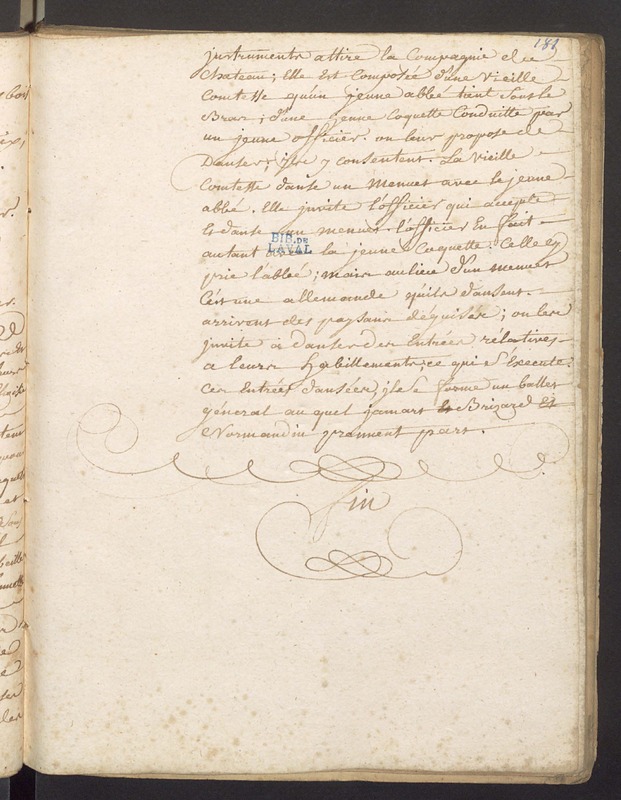 189
jnstruments attire la Compagnie du
Chateau; Elle Est Composée d'une Vieille
Comtesse qu'un jeune abbé tient Sous le
Bras; d'une jeune Coquette Conduitte par
un jeune officier. on leur propose de
Danser; jls y Consentent. La Vieille
Comtesse danse un Menuet avec le jeune
abbé. Elle jnvite l'officier qui accepte
Et danse un menuet. l'officier En fait
autant à la jeune Coquette. Celle cy
prie l'abbé; mais aulieu d'un menuet
C'est une allemande qu'ils dansent.
arrivent des paysans déguisés; on les
jnvite à danser des Entrées rélatives
a leurs habillements; ce qui s'Execute.
Ces Entrées dansées, jl se forme un ballet
géneral au quel jamart Brizard Et
Normandin prennent part.
fin
BIB. DE
LAVAL